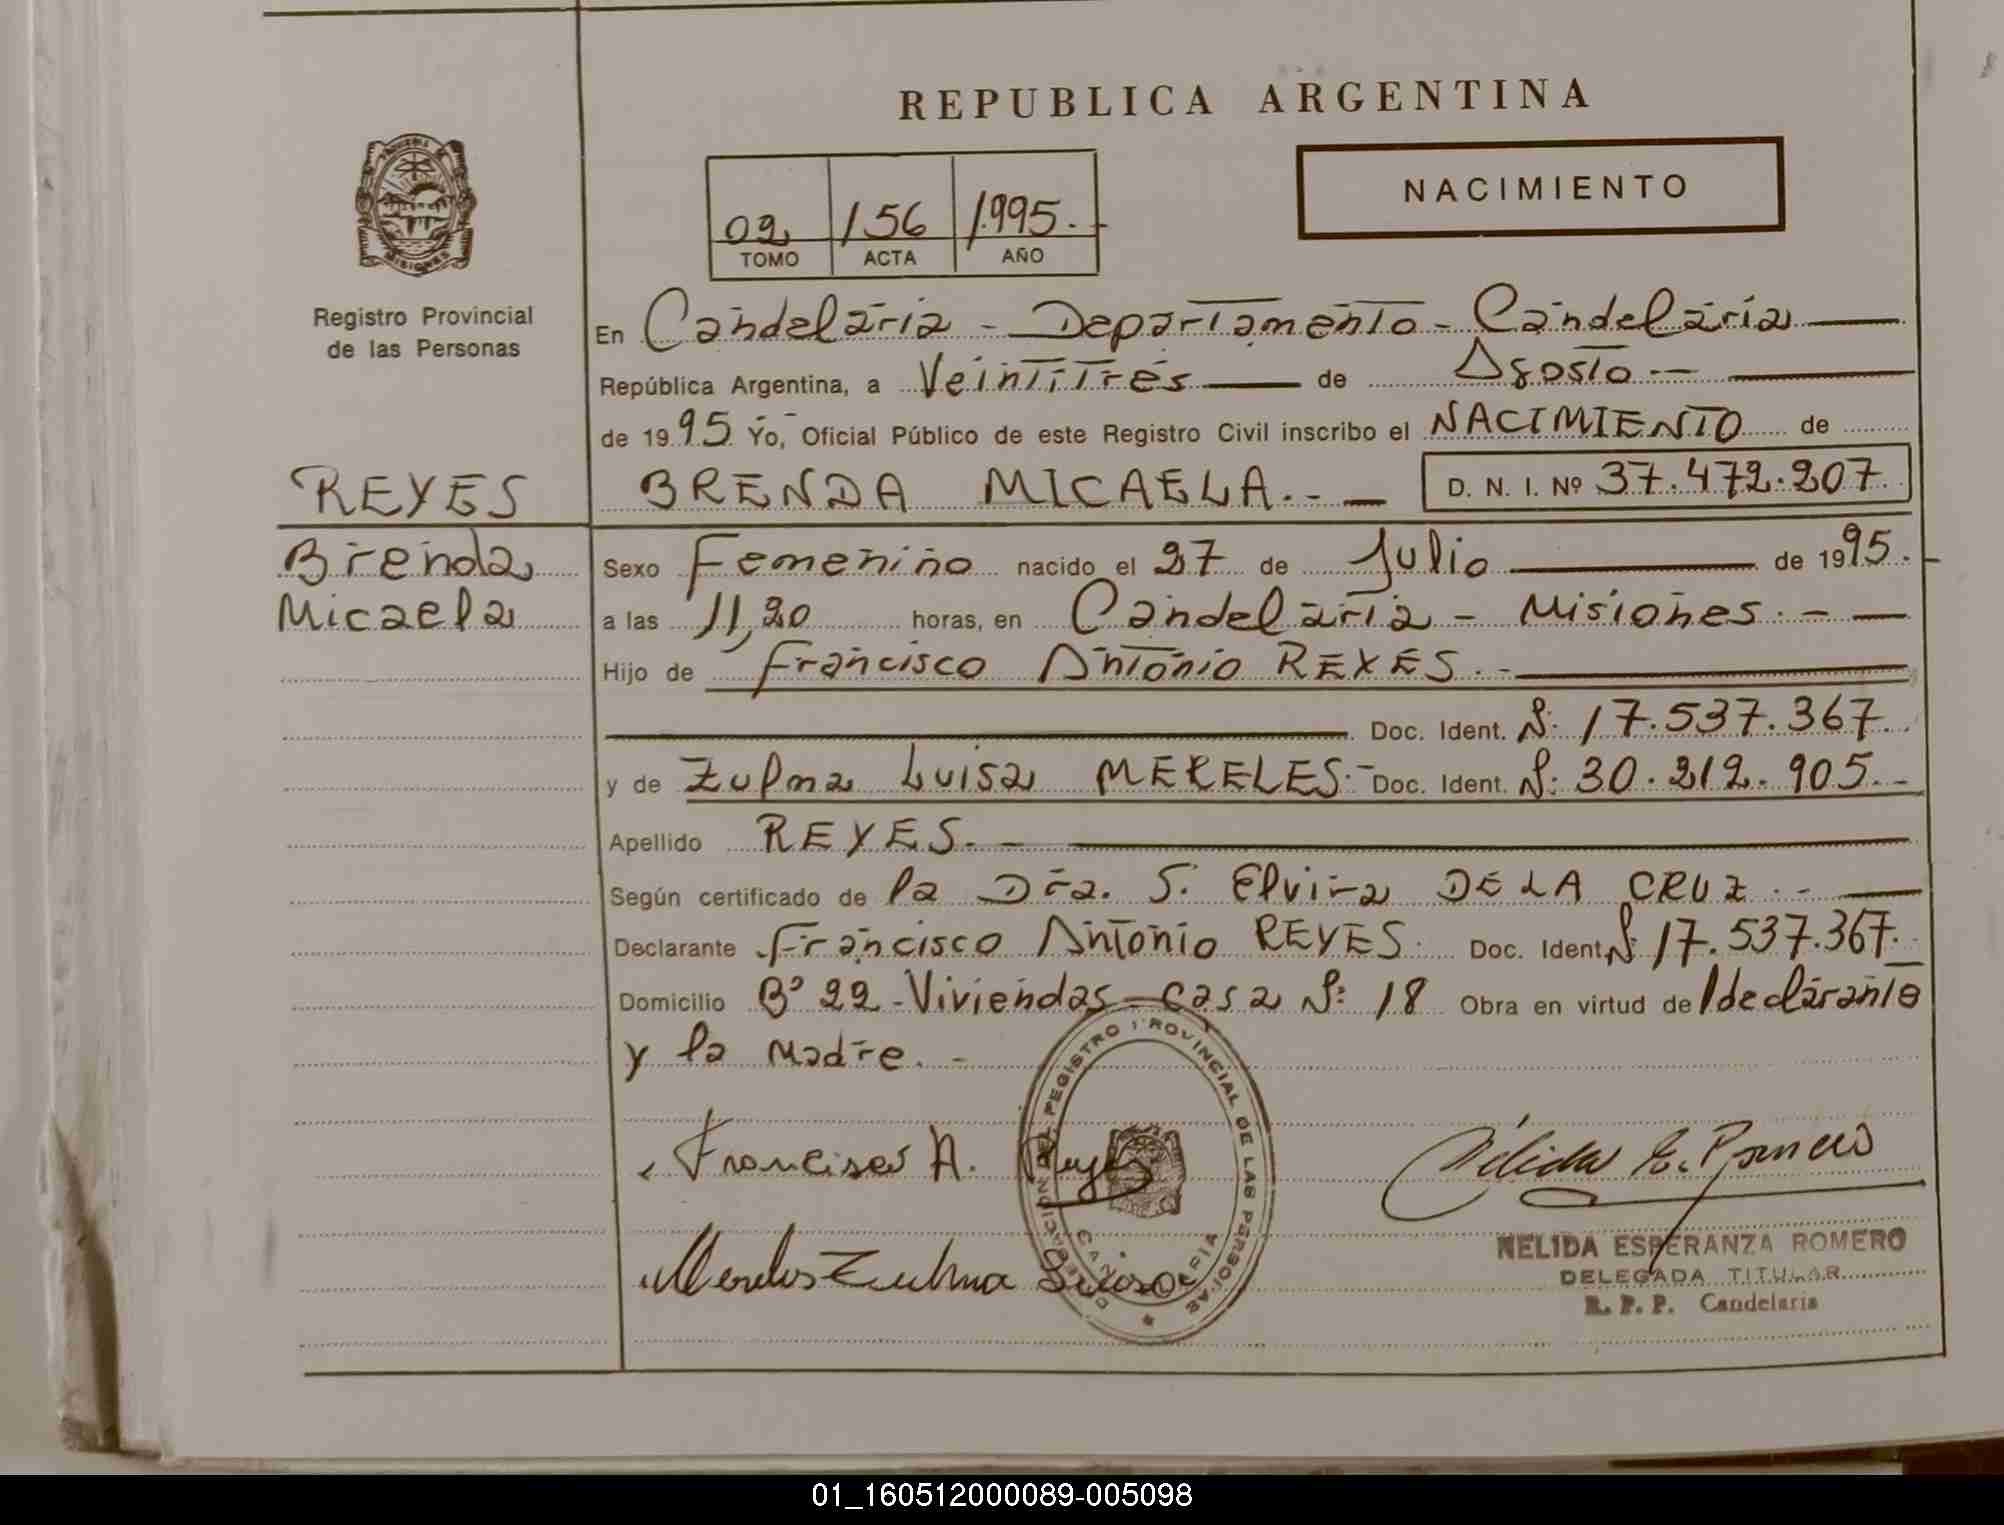 REPUBLICA ARGENTINA
NACIMIENTO
02 156 1995.-
TOMO ACTA AÑO
Registro Provincial
de las Personas
En Candelaria - Departamento - Candelaria
República Argentina, a Veintitrés de Agosto.-
de 1995. Yo, Oficial Público de este Registro Civil inscribo el NACIMIENTO de
BRENDA MICAELA.- D. N. I. Nº 37.472.207.
REYES
Brenda
Micaela
Sexo Femenino nacido el 27 de Julio de 1995.-
a las 11,20 horas, en Candelaria - Misiones.-
Hijo de Francisco Antonio REYES.-
Doc. Ident. Nº 17.537.367.
y de Zulma Luisa MERELES.- Doc. Ident. Nº 30.212.905.-
Apellido REYES.-
Según certificado de la Dra. S. Elvira DE LA CRUZ.-
Declarante Francisco Antonio REYES. Doc. Ident. Nº 17.537.367.-
Domicilio Bº 22 - Viviendas - casa Nº 18 Obra en virtud de / declarante
y la Madre.-
Francisco A. Reyes
Mereles Zulma Luisa
DELEGACION DEL REGISTRO PROVINCIAL DE LAS PERSONAS
CANDELARIA
Nélida E. Romero
NELIDA ESPERANZA ROMERO
DELEGADA TITULAR
R. P. P. Candelaria
01_160512000089-005098